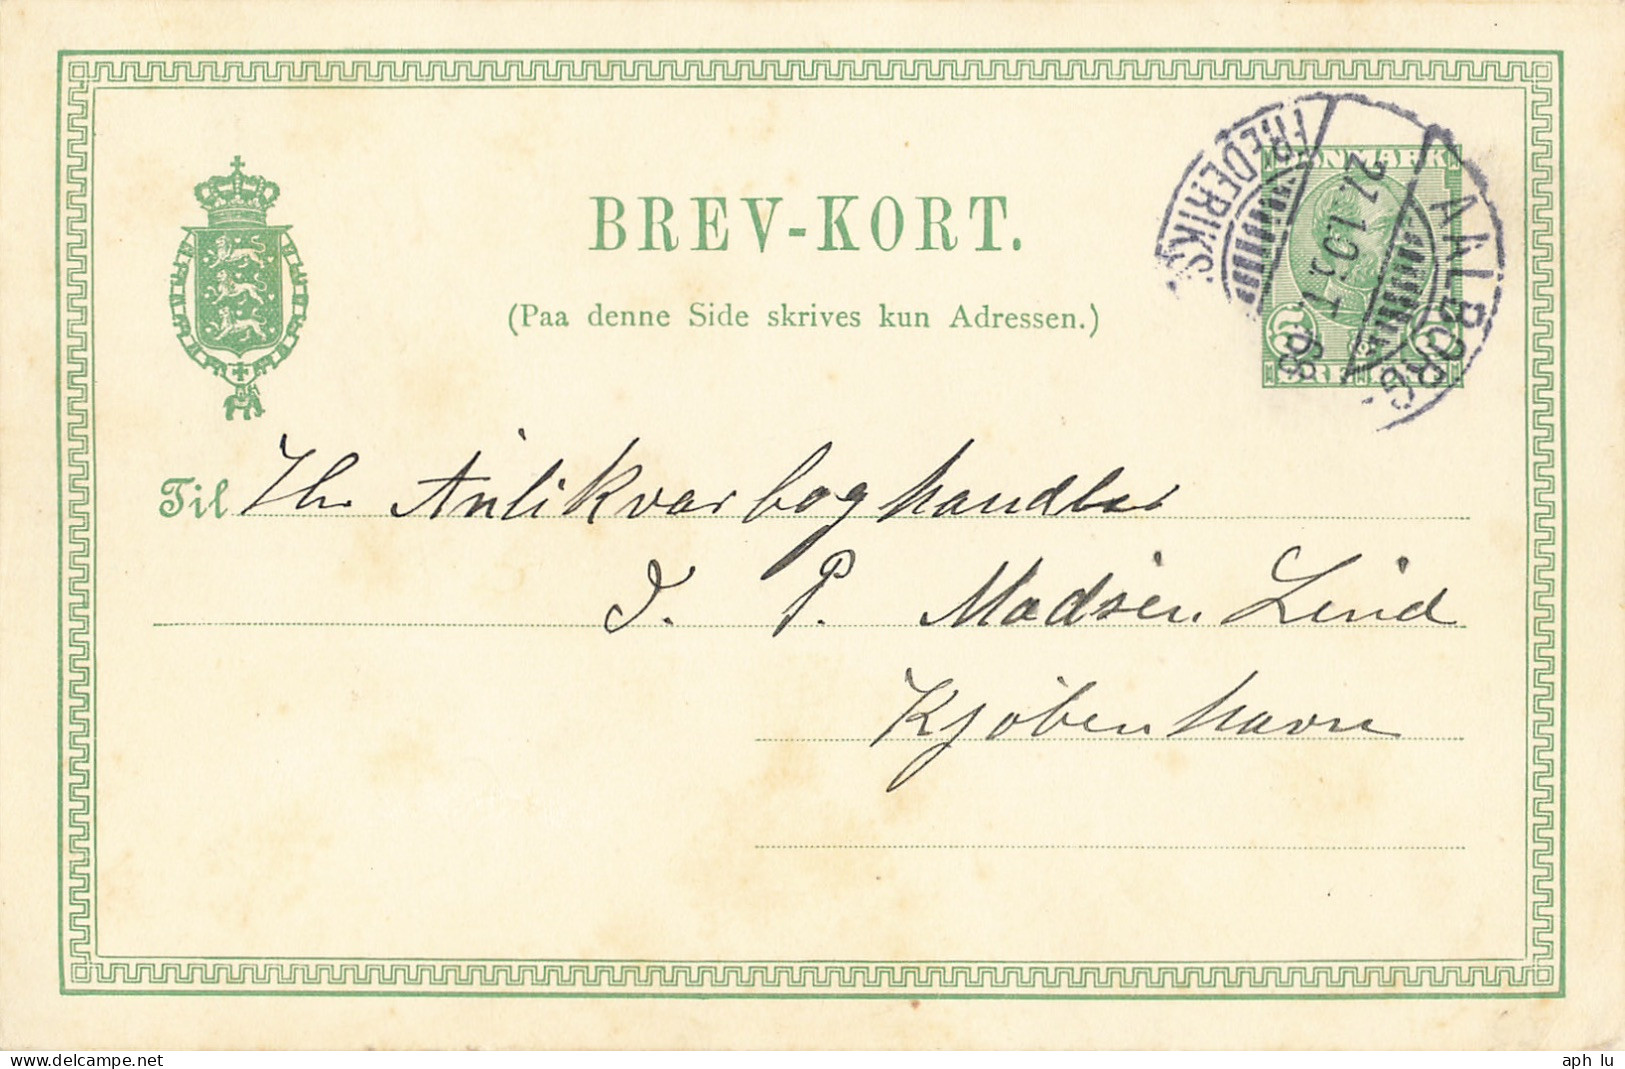 BREV-KORT.
(Paa denne Side skrives kun Adressen.)
DANMARK
ØRE
AALBORG
FREDERIKS
Til Hr Antikvarboghandler
J. P. Madsen Lind
Kjøbenhavn
delcampe.net
aph lu